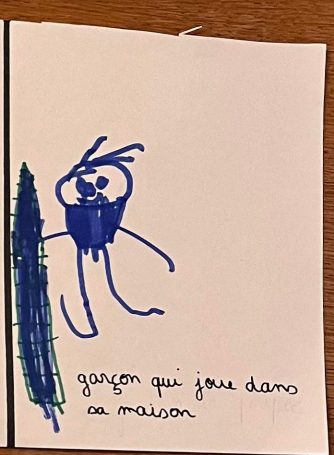 garçon qui joue dans
sa maison